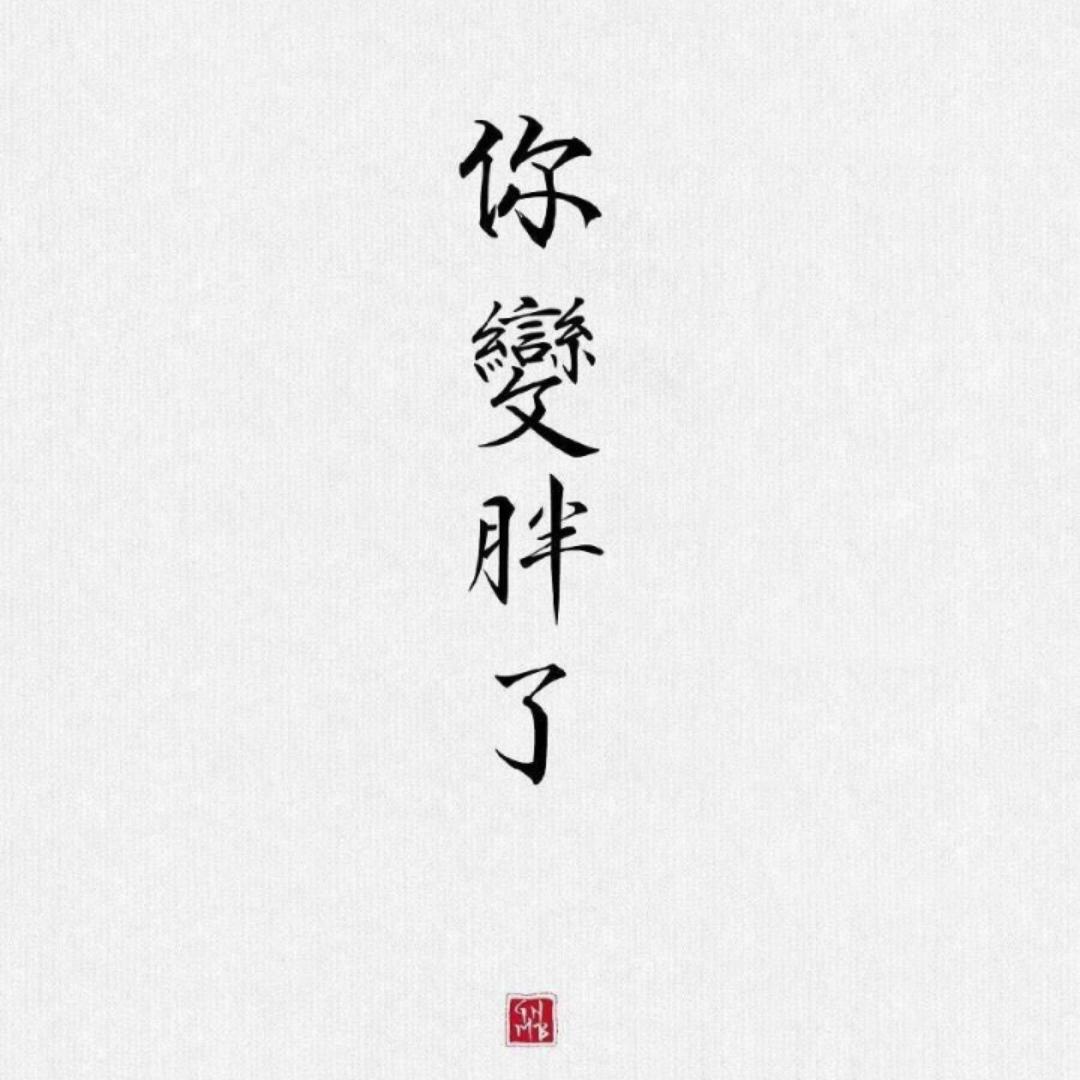 你變胖了
GN
MB